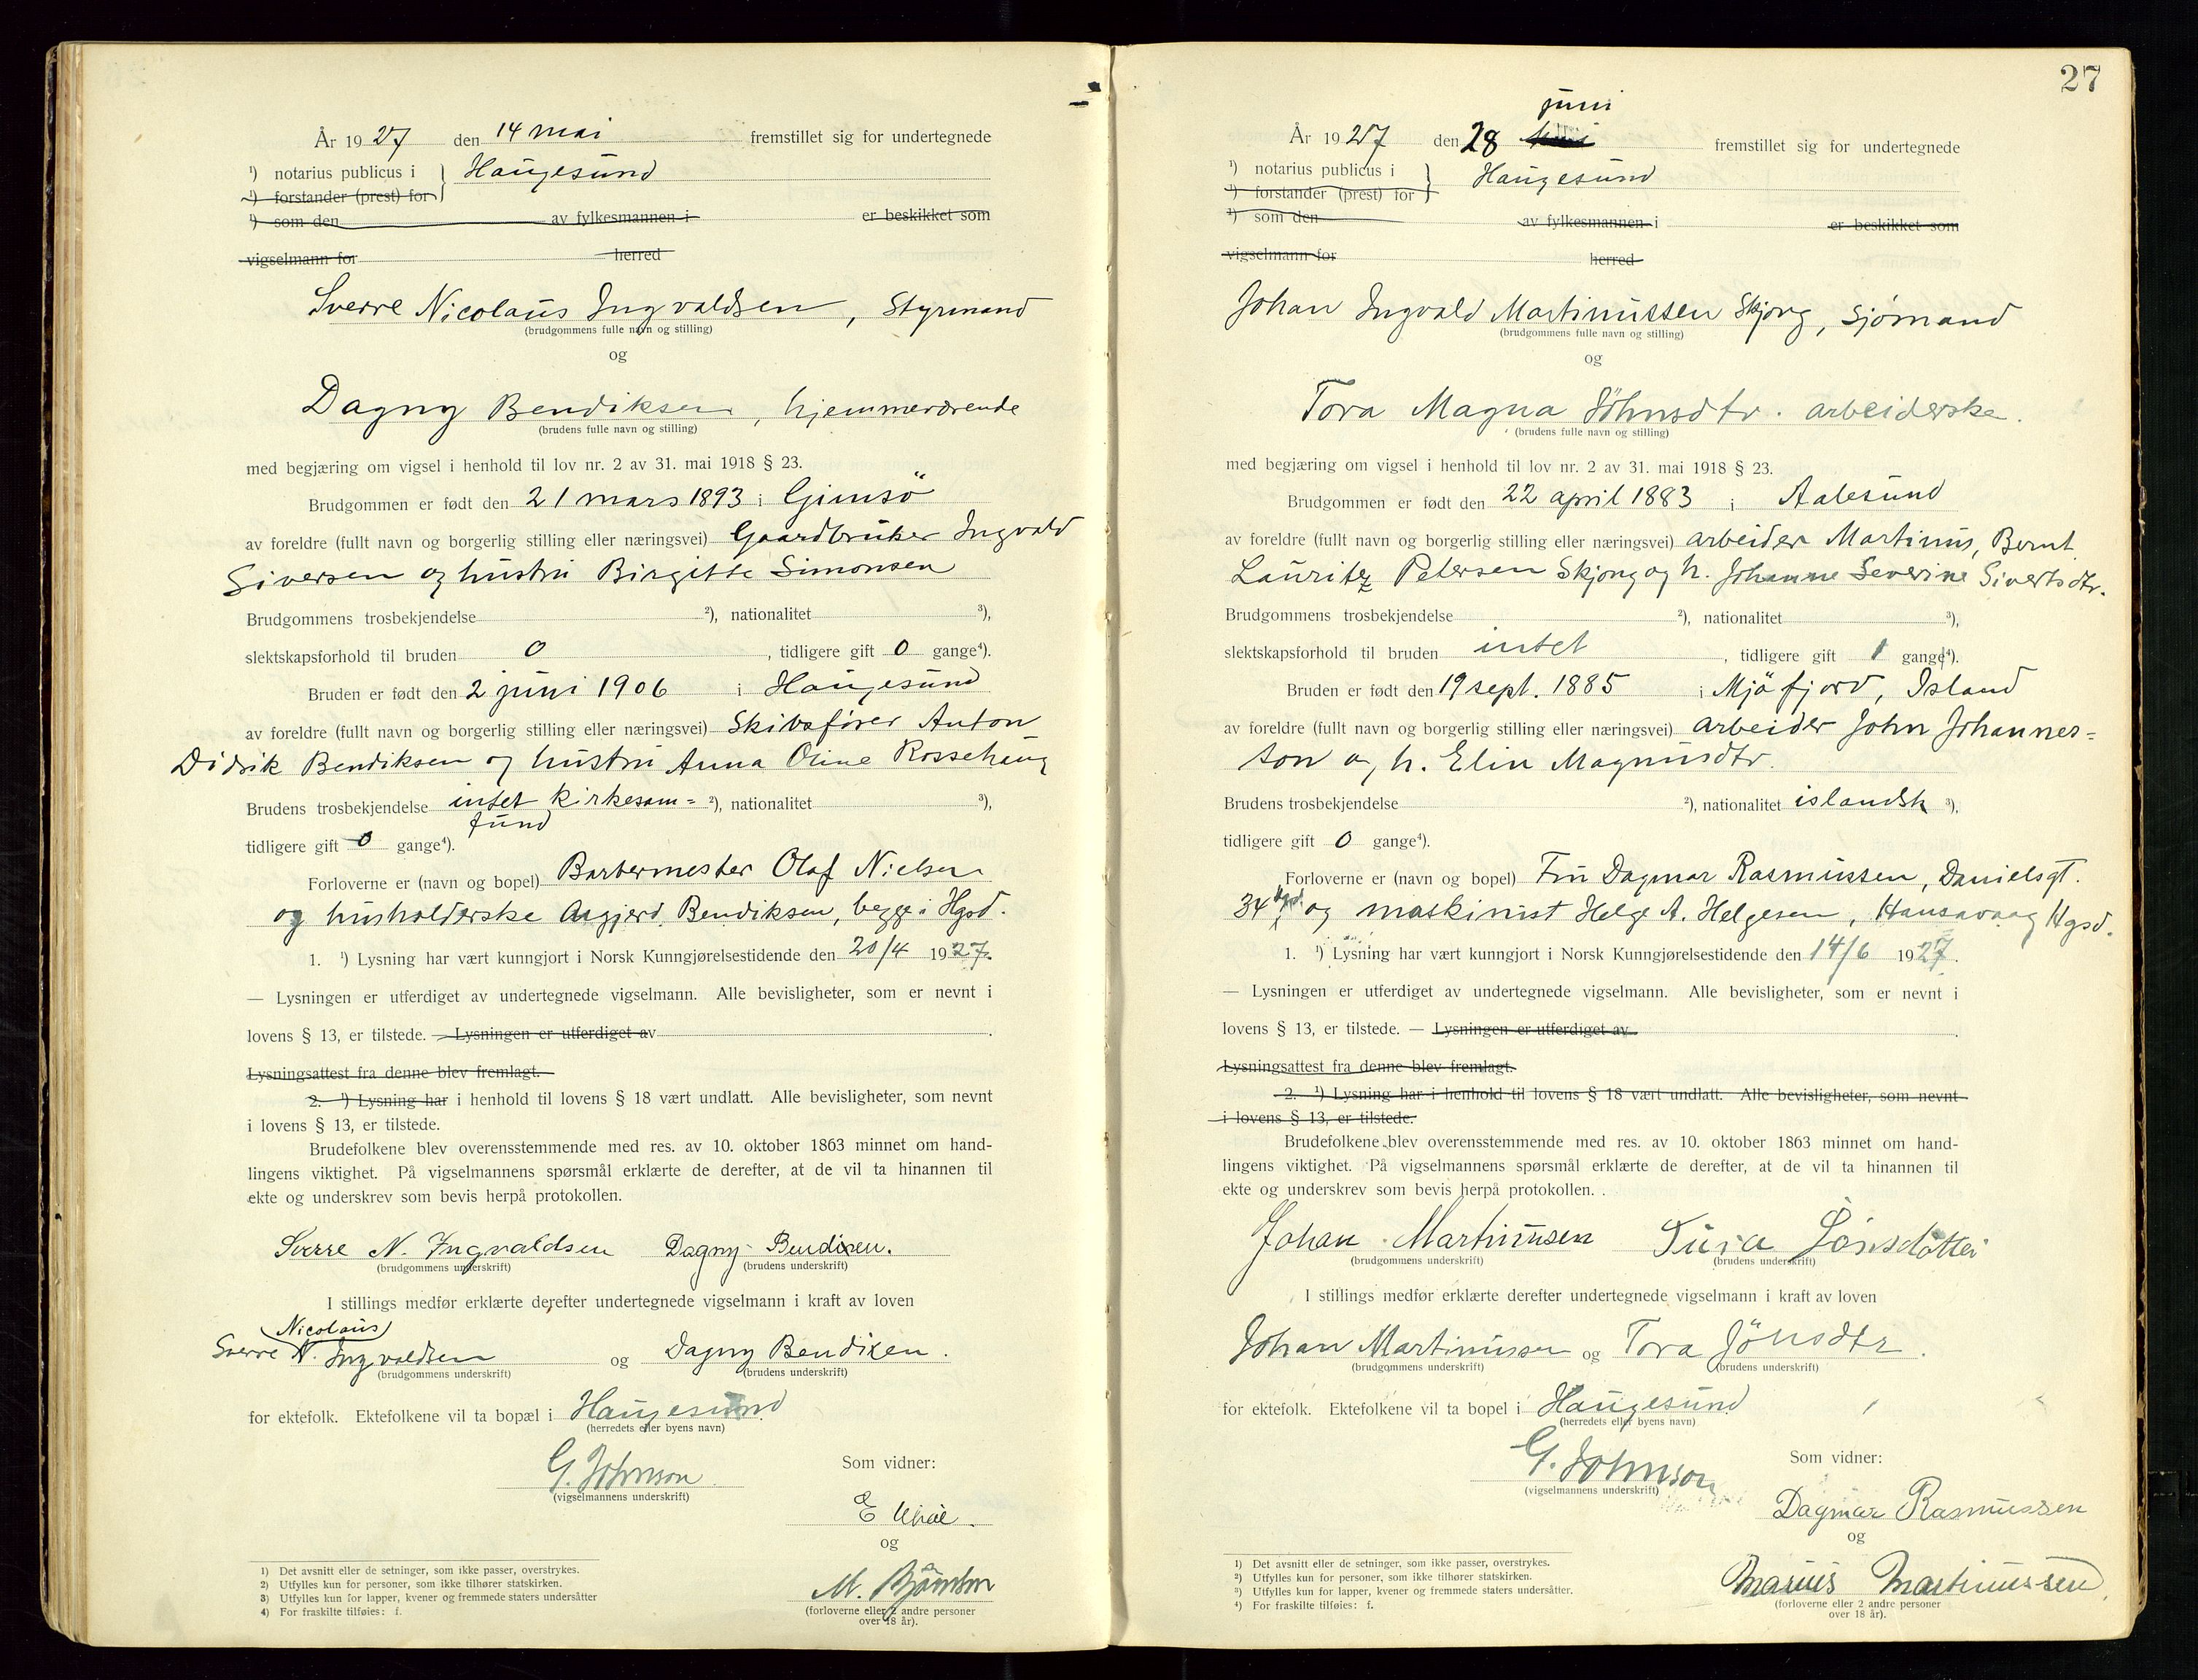 År 1927 den 14 mai fremstillet sig for undertegnede
¹) notarius publicus i } Haugesund
¹) forstander (prest) for
¹) som den av fylkesmannen i er beskikket som
vigselmann for herred
Sverre Nicolaus Ingvaldsen, Styrmand
(brudgommens fulle navn og stilling)
og
Dagny Bendiksen, hjemmeværende
(brudens fulle navn og stilling)
med begjæring om vigsel i henhold til lov nr. 2 av 31. mai 1918 § 23.
Brudgommen er født den 21 mars 1893 i Gimsö
av foreldre (fullt navn og borgerlig stilling eller næringsvei) Gaardbruker Ingvald
Siversen og hustru Birgitte Simonsen
Brudgommens trosbekjendelse ²), nationalitet ³),
slektskapsforhold til bruden 0, tidligere gift 0 gange⁴).
Bruden er født den 2 juni 1906 i Haugesund
av foreldre (fullt navn og borgerlig stilling eller næringsvei) Skibsfører Anton
Didrik Bendiksen og hustru Anna Oline Rossehaug
Brudens trosbekjendelse intet kirkesam= ²), nationalitet ³),
fund
tidligere gift 0 gange⁴).
Forloverne er (navn og bopel) Barbermester Olaf Nielsen
og husholderske Asgjerd Bendiksen, begge i Hgsd.
1. ¹) Lysning har vært kunngjort i Norsk Kunngjørelsestidende den 20/4 1927.
— Lysningen er utferdiget av undertegnede vigselmann. Alle bevisligheter, som er nevnt i
lovens § 13, er tilstede. — Lysningen er utferdiget av .
Lysningsattest fra denne blev fremlagt.
2. ¹) Lysning har i henhold til lovens § 18 vært undlatt. Alle bevisligheter, som nevnt
i lovens § 13, er tilstede.
Brudefolkene blev overensstemmende med res. av 10. oktober 1863 minnet om hand-
lingens viktighet. På vigselmannens spørsmål erklærte de derefter, at de vil ta hinannen til
ekte og underskrev som bevis herpå protokollen.
Sverre N. Ingvaldsen Dagny Bendixen.
(brudgommens underskrift) (brudens underskrift)
I stillings medfør erklærte derefter undertegnede vigselmann i kraft av loven
Nicolaus
Sverre N. Ingvaldsen og Dagny Bendixen.
(brudgommens underskrift) (brudens underskrift)
for ektefolk. Ektefolkene vil ta bopæl i Haugesund
(herredets eller byens navn)
G. Johnson
(vigselmannens underskrift)
Som vidner:
E
og
M.
(forloverne eller 2 andre personer
over 18 år).
1) Det avsnitt eller de setninger, som ikke passer, overstrykes.
2) Utfylles kun for personer, som ikke tilhører statskirken.
3) Utfylles kun for lapper, kvener og fremmede staters undersåtter
4) For fraskilte tilføies: f.
27
juni
År 1927 den 28 fremstillet sig for undertegnede
¹) notarius publicus i } Haugesund
¹) forstander (prest) for
¹) som den av fylkesmannen i er beskikket som
vigselmann for herred
Johan Ingvald Martinussen Skjong, Sjømand
(brudgommens fulle navn og stilling)
og
Tora Magna Jöhnsdtr. arbeiderske.
(brudens fulle navn og stilling)
med begjæring om vigsel i henhold til lov nr. 2 av 31. mai 1918 § 23.
Brudgommen er født den 22 april 1883 i Aalesund
av foreldre (fullt navn og borgerlig stilling eller næringsvei) arbeider Martinus, Bernt
Lauritz Petersen Skjong og h. Johanne Severine Sivertsdtr.
Brudgommens trosbekjendelse ²), nationalitet ³),
slektskapsforhold til bruden intet, tidligere gift 1 gang⁴).
Bruden er født den 19 sept. 1885 i Mjöfjord, Island
av foreldre (fullt navn og borgerlig stilling eller næringsvei) arbeider John Johannes=
son og h. Elin Magnusdtr.
Brudens trosbekjendelse ²), nationalitet islandsk ³),
tidligere gift 0 gange⁴).
Forloverne er (navn og bopel) Fru Dagmar Rasmussen, Danielsgt.
34 Hgsd. og maskinist Helge A. Helgesen, Hansavaag Hgsd.
1. ¹) Lysning har vært kunngjort i Norsk Kunngjørelsestidende den 14/6 1927.
— Lysningen er utferdiget av undertegnede vigselmann. Alle bevisligheter, som er nevnt i
lovens § 13, er tilstede. — Lysningen er utferdiget av .
Lysningsattest fra denne blev fremlagt.
2. ¹) Lysning har i henhold til lovens § 18 vært undlatt. Alle bevisligheter, som nevnt
i lovens § 13, er tilstede.
Brudefolkene blev overensstemmende med res. av 10. oktober 1863 minnet om hand-
lingens viktighet. På vigselmannens spørsmål erklærte de derefter, at de vil ta hinannen til
ekte og underskrev som bevis herpå protokollen.
Johan Martinusen Jónsdóttir
(brudgommens underskrift) (brudens underskrift)
I stillings medfør erklærte derefter undertegnede vigselmann i kraft av loven
Johan Martinussen og Tora Jónsdtr.
(brudgommens underskrift) (brudens underskrift)
for ektefolk. Ektefolkene vil ta bopel i Haugesund
(herredets eller byens navn)
G. Johnson
(vigselmannens underskrift)
Som vidner:
Dagmar Rasmussen
og
Marius Martinussen
(forloverne eller 2 andre personer
over 18 år).
1) Det avsnitt eller de setninger, som ikke passer, overstrykes.
2) Utfylles kun for personer, som ikke tilhører statskirken.
3) Utfylles kun for lapper, kvener og fremmede staters undersåtter.
4) For fraskilte tilføies: f.